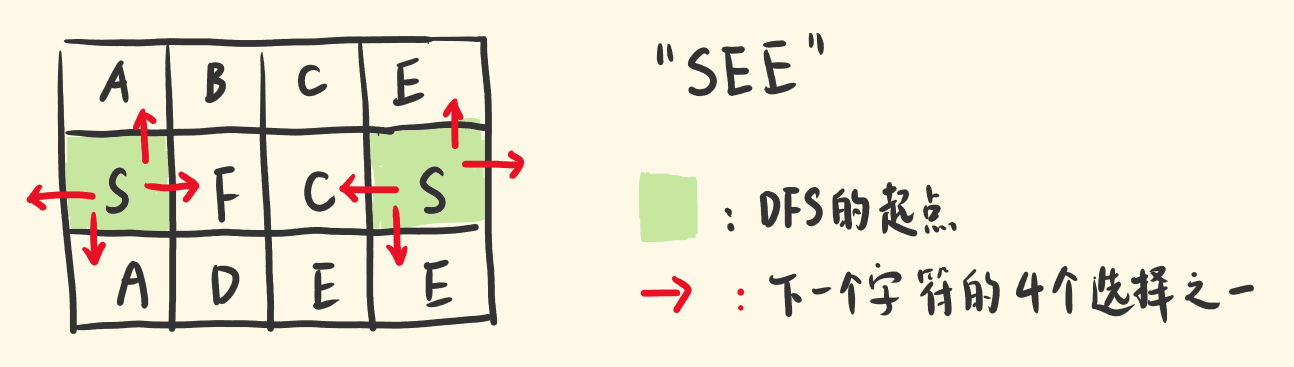 A B C E
S F C S
A D E E
"SEE"
: DFS的起点
: 下一个字符的4个选择之一